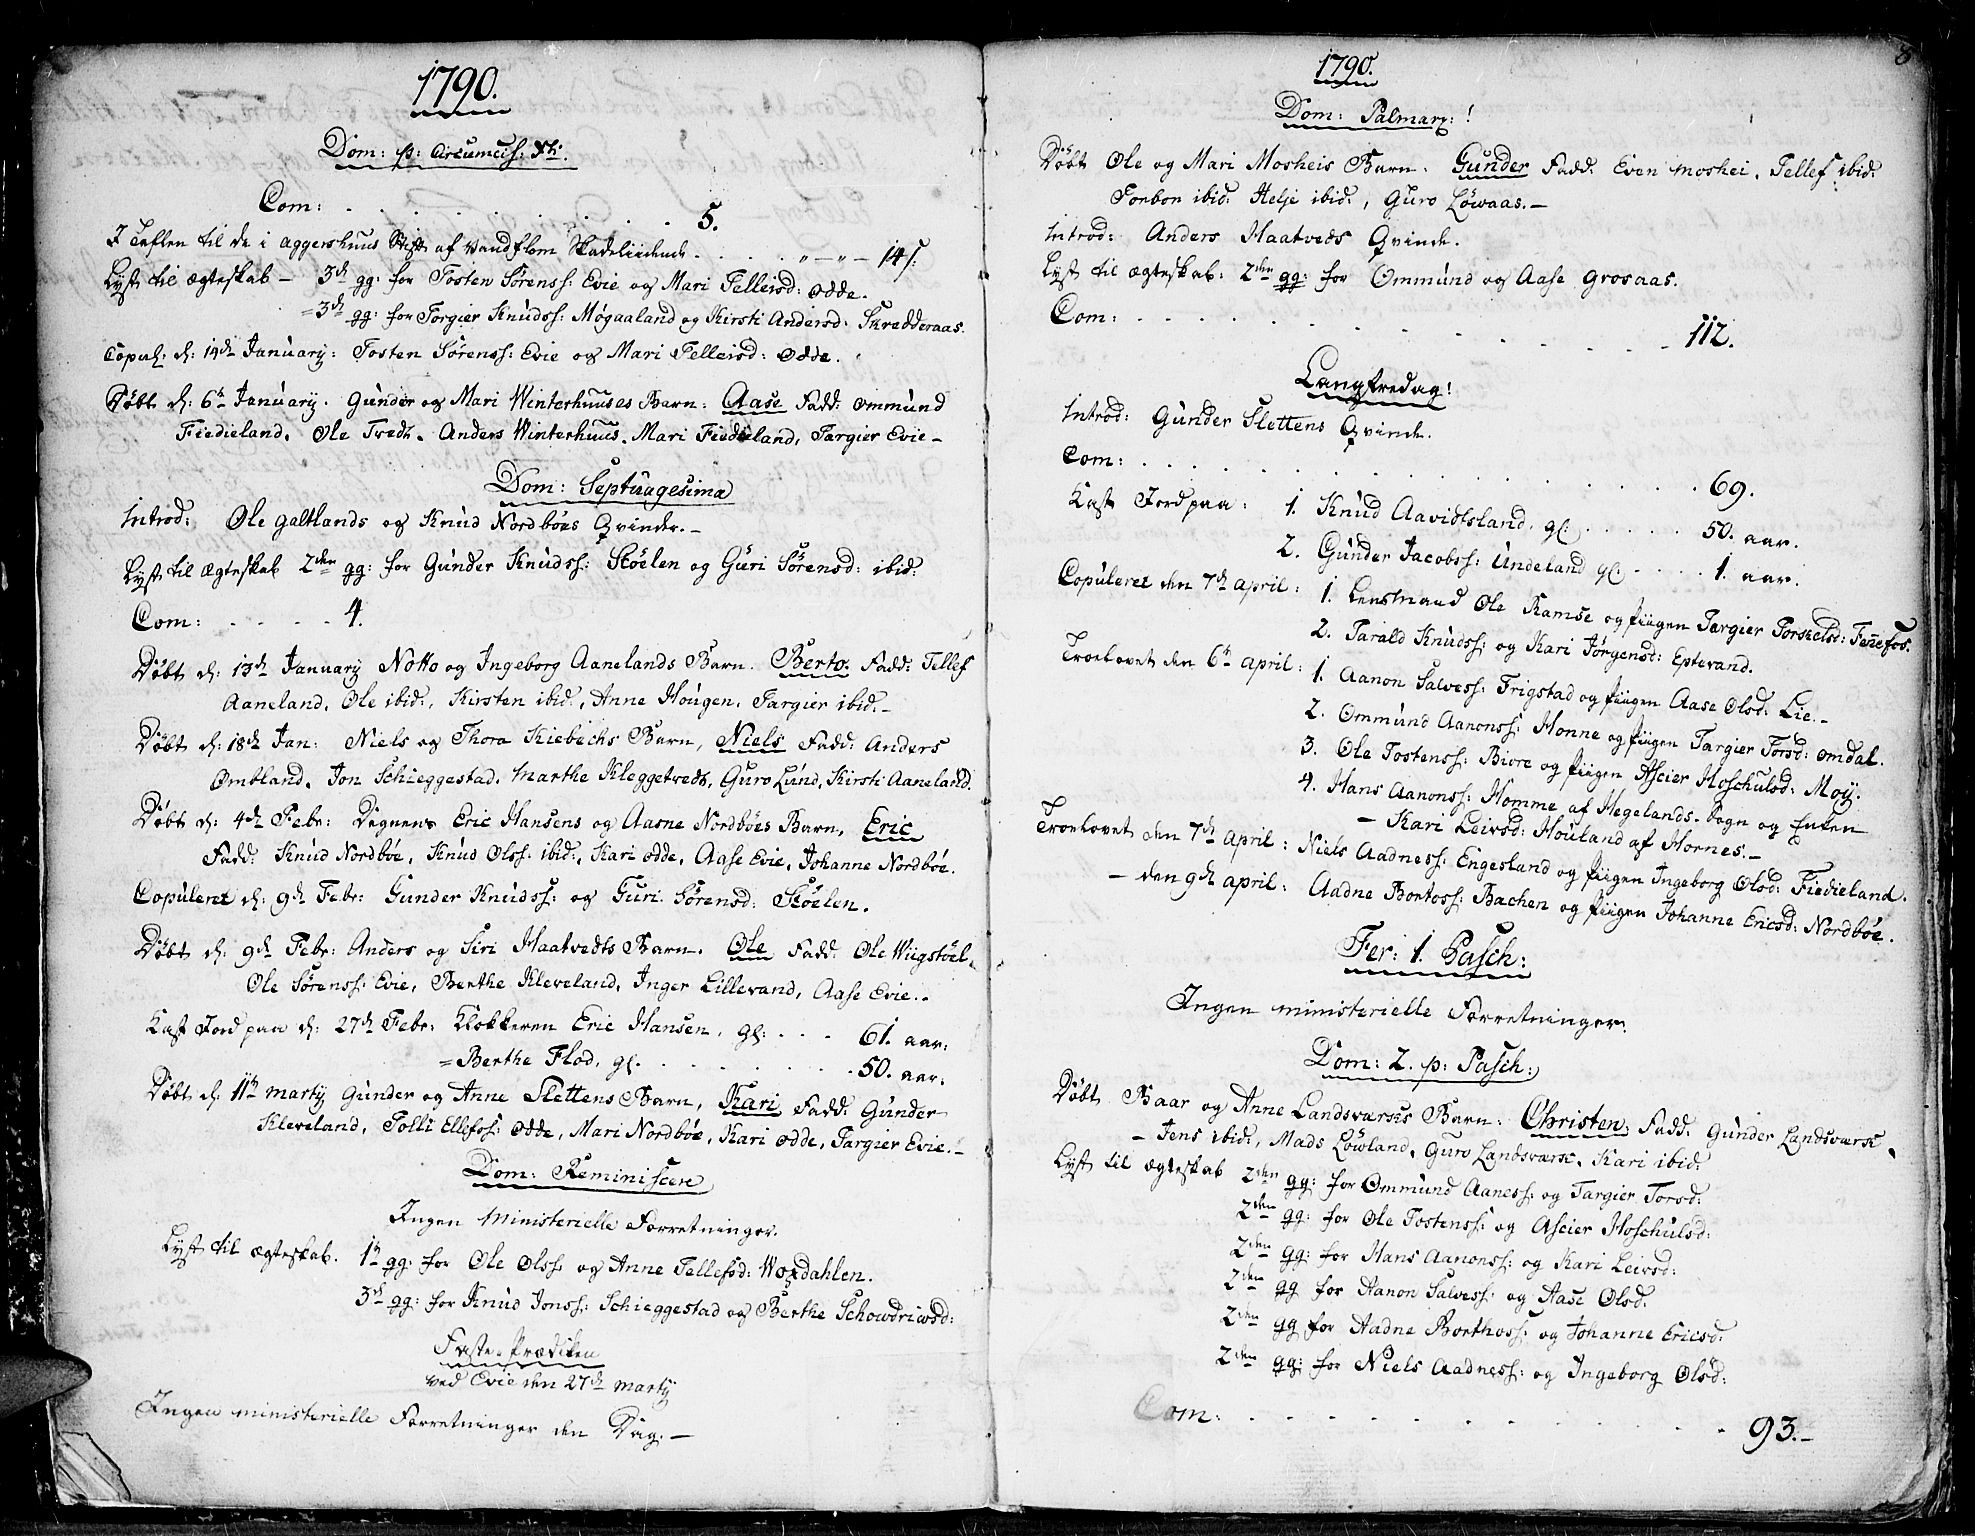 1790.
Dom: p: Circumcis: Xti.
Com: . . . . . . . . . 5.
I Taflen til de i Aggershuus Stift af Vandflom Skadeliidende . . . . „ — „ — 14 s.
Lyst til Ægteskab — 3de gg: for Tosten Sørenss: Evie og Mari Telleisd: Odde.
= 3de gg: for Torgier Knudss: Møgaaland og Kirsti Andersd: Skredderaas.
Copul: d: 14de January: Tosten Sørenss: Evie og Mari Telleisd: Odde.
Døbt d: 6te January. Gunder og Mari Winterhuuses Barn: Aase Fadd: Ommund
Fiedieland, Ole Tredt. Anders Winterhuus. Mari Fiedieland, Targier Evie —
Dom: Septuagesima
Introd: Ole Galtlands og Knud Nordbøes Qvinder. —
Lyst til Ægteskab 2den gg: for Gunder Knudss: Støelen og Guri Sørensd: ibid:
Com: . . . . . 4.
Døbt d: 13de January Notto og Ingeborg Aanelands Barn. Berto. Fadd: Tellef
Aaneland, Ole ibid:, Kirsten ibid:, Anne Hougen, Targier ibid. —
Døbt d: 18de Jan: Niels og Thora Kiebechs Barn, Niels Fadd: Anders
Omtland, Jon Schieggestad. Marthe Kleggetvedt, Guro Lund, Kirsti Aaneland.
Døbt d: 4de Febr: Degnens Eric Hansens og Aasne Nordbøes Barn, Eric
Fadd: Knud Nordbøe, Knud Olss. ibid:, Kari Odde, Aase Evie, Johanne Nordbøe.
Copuleret d: 9de Febr: Gunder Knudss: og Guri Sørensd: Støelen.
Døbt d: 9de Febr: Anders og Siri Haatvedts Barn. Ole Fadd: Ole Wiigstøel,
Ole Sørenss: Evie, Berthe Kleveland, Inger Lillevand, Aase Evie. —
Kast Jord paa d: 27de Febr: Klokkeren Eric Hansen, gl: . . . 61. aar:
= Berthe Flod, gl. . . . . . . . 50. aar:
Døbt d: 11te Marty Gunder og Anne Slettens Barn, Kari Fadd: Gunder
Kleveland, Tolli Ellefss: Odde, Mari Nordbøe, Kari Odde, Targier Evie. —
Dom: Reminiscere
Ingen Ministerielle Forretninger.
Lyst til Ægteskab. 1te gg: for Ole Olss. og Anne Tellefsd: Woxdahlen.
3de gg: for Knud Jonss: Schieggestad og Berthe Schowdriwsd:
Faste-Prædiken
ved Evie den 27de Marty
Ingen ministerielle Forretninger den Dag. —
8
1790.
Dom: Palmarx: !
Døbt Ole og Mari Mosheis Barn. Gunder Fadd: Even Moshei, Tellef ibid:
Torbor ibid: Helje ibid:, Guro Löwaas. —
Introd: Anders Haatveds Qvinde.
Lyst til Ægteskab: 2den gg: for Ommund og Aase Grosaas.
Com: . . . . . . . . . . . 112.
Langfredag!
Introd: Gunder Slettens Qvinde.
Com: . . . . . . . . . . . 69.
Kast Jord paa: 1. Knud Aavidtsland, gl: . . . . . 50. aar.
2. Gunder Jacobss: Undeland gl: . . . . 1. aar.
Copuleret den 7de April: 1. Lensmand Ole Ramse og Piigen Targier Torkelsd: Fennefos.
2. Tarald Knudss: og Kari Jørgensd: Eptevand.
Troelovet den 6te April: 1. Aanon Salvess: Frigstad og Piigen Aase Olsd: Lie. —
2. Ommund Aanonss: Honne og Piigen Targier Torsd: Omdal.
3. Ole Tostenss: Biore og Piigen Ascier Hoschulsd: Moÿ.
4. Hans Aanonss: Homme af Hegelands-Sogn og Enken
— Kari Leivsd: Houland af Hornes. —
Troelovet den 7de April: Niels Aadness: Engesland og Piigen Ingeborg Olsd: Fiedieland.
— den 9de April: Aadne Bertoss: Bachen og Piigen Johanne Ericsd: Nordbøe.
Fer: 1. Pasch:
Ingen ministerielle Forretninger.
Dom: 2. p: Pasch:
Døbt Baar og Anne Landsværks Barn: Christen, Fadd: Gunder Landsværk,
— Jens ibid:, Mads Löwland, Guro Landsværk, Kari ibid:
Lyst til Ægteskab 2den gg: for Ommund Aaness: og Targier Torsd:
2den gg: for Ole Tostenss: og Ascier Hoschulsd:
2den gg: for Hans Aanonss: og Kari Leivsd:
2den gg for Aanon Salvess: og Aase Olsd:
2den gg for Aadne Berthoss: og Johanne Ericsd:
2den gg: for Niels Aadness: og Ingeborg Olsd:
Com: . . . . . . . . . . . 93. —